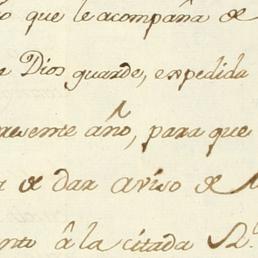 que le acompaña de
Dios guarde, expedida
presente año, para que
de dar aviso de
â la citada